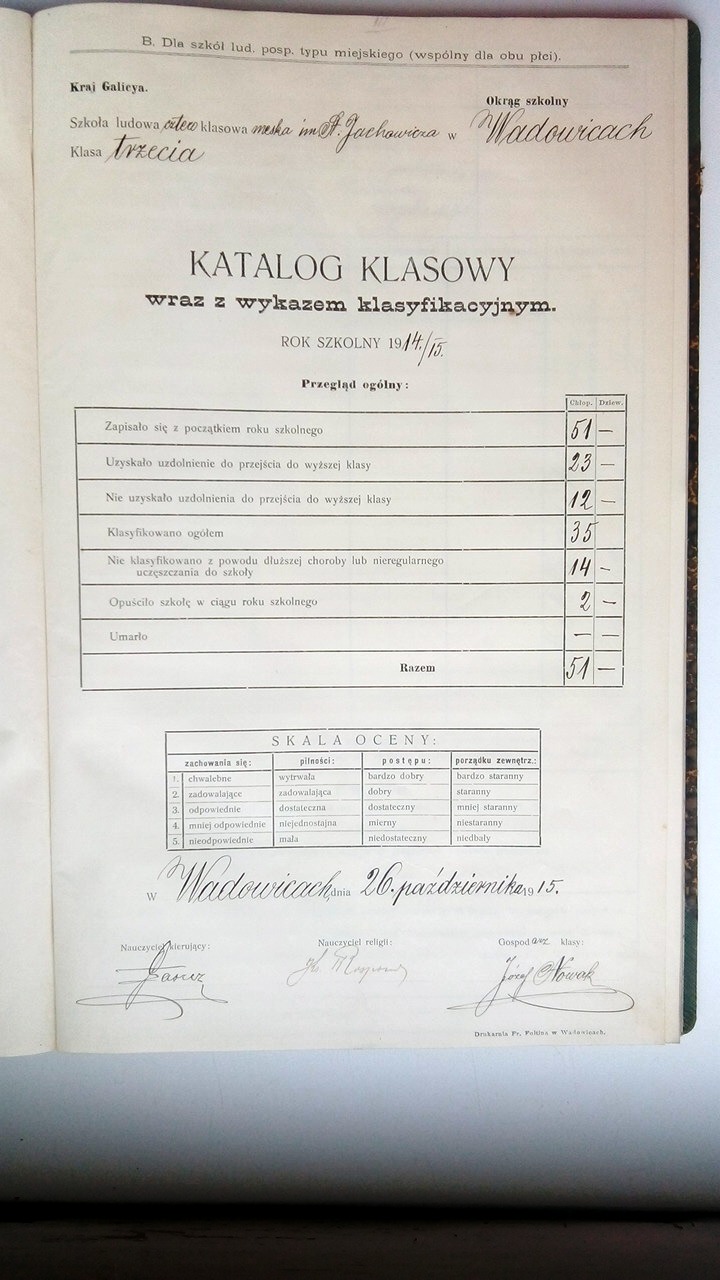 B. Dla szkół lud. posp. typu miejskiego (wspólny dla obu płci).
Kraj Galicya.
Okrąg szkolny
Szkoła ludowa czter klasowa męska im St. Jachowicza w Wadowicach
Klasa trzecia
KATALOG KLASOWY
wraz z wykazem klasyfikacyjnym.
ROK SZKOLNY 1914/15.
Przegląd ogólny:
Chłop. Dziew.
Zapisało się z początkiem roku szkolnego 51 —
Uzyskało uzdolnienie do przejścia do wyższej klasy 23 —
Nie uzyskało uzdolnienia do przejścia do wyższej klasy 12 —
Klasyfikowano ogółem 35
Nie klasyfikowano z powodu dłuższej choroby lub nieregularnego
uczęszczania do szkoły 14 -
Opuściło szkołę w ciągu roku szkolnego 2 —
Umarło — —
Razem 51 —
SKALA OCENY:
zachowania się: pilności: postępu: porządku zewnętrz.:
1. chwalebne wytrwała bardzo dobry bardzo staranny
2. zadowalające zadowalająca dobry staranny
3. odpowiednie dostateczna dostateczny mniej staranny
4. mniej odpowiednie niejednostajna mierny niestaranny
5. nieodpowiednie mała niedostateczny niedbały
W Wadowicach, dnia 26. października 1915.
Nauczyciel kierujący: Nauczyciel religii: Gospodarz klasy:
Józef Nowak
Drukarnia Fr. Foltina w Wadowicach.